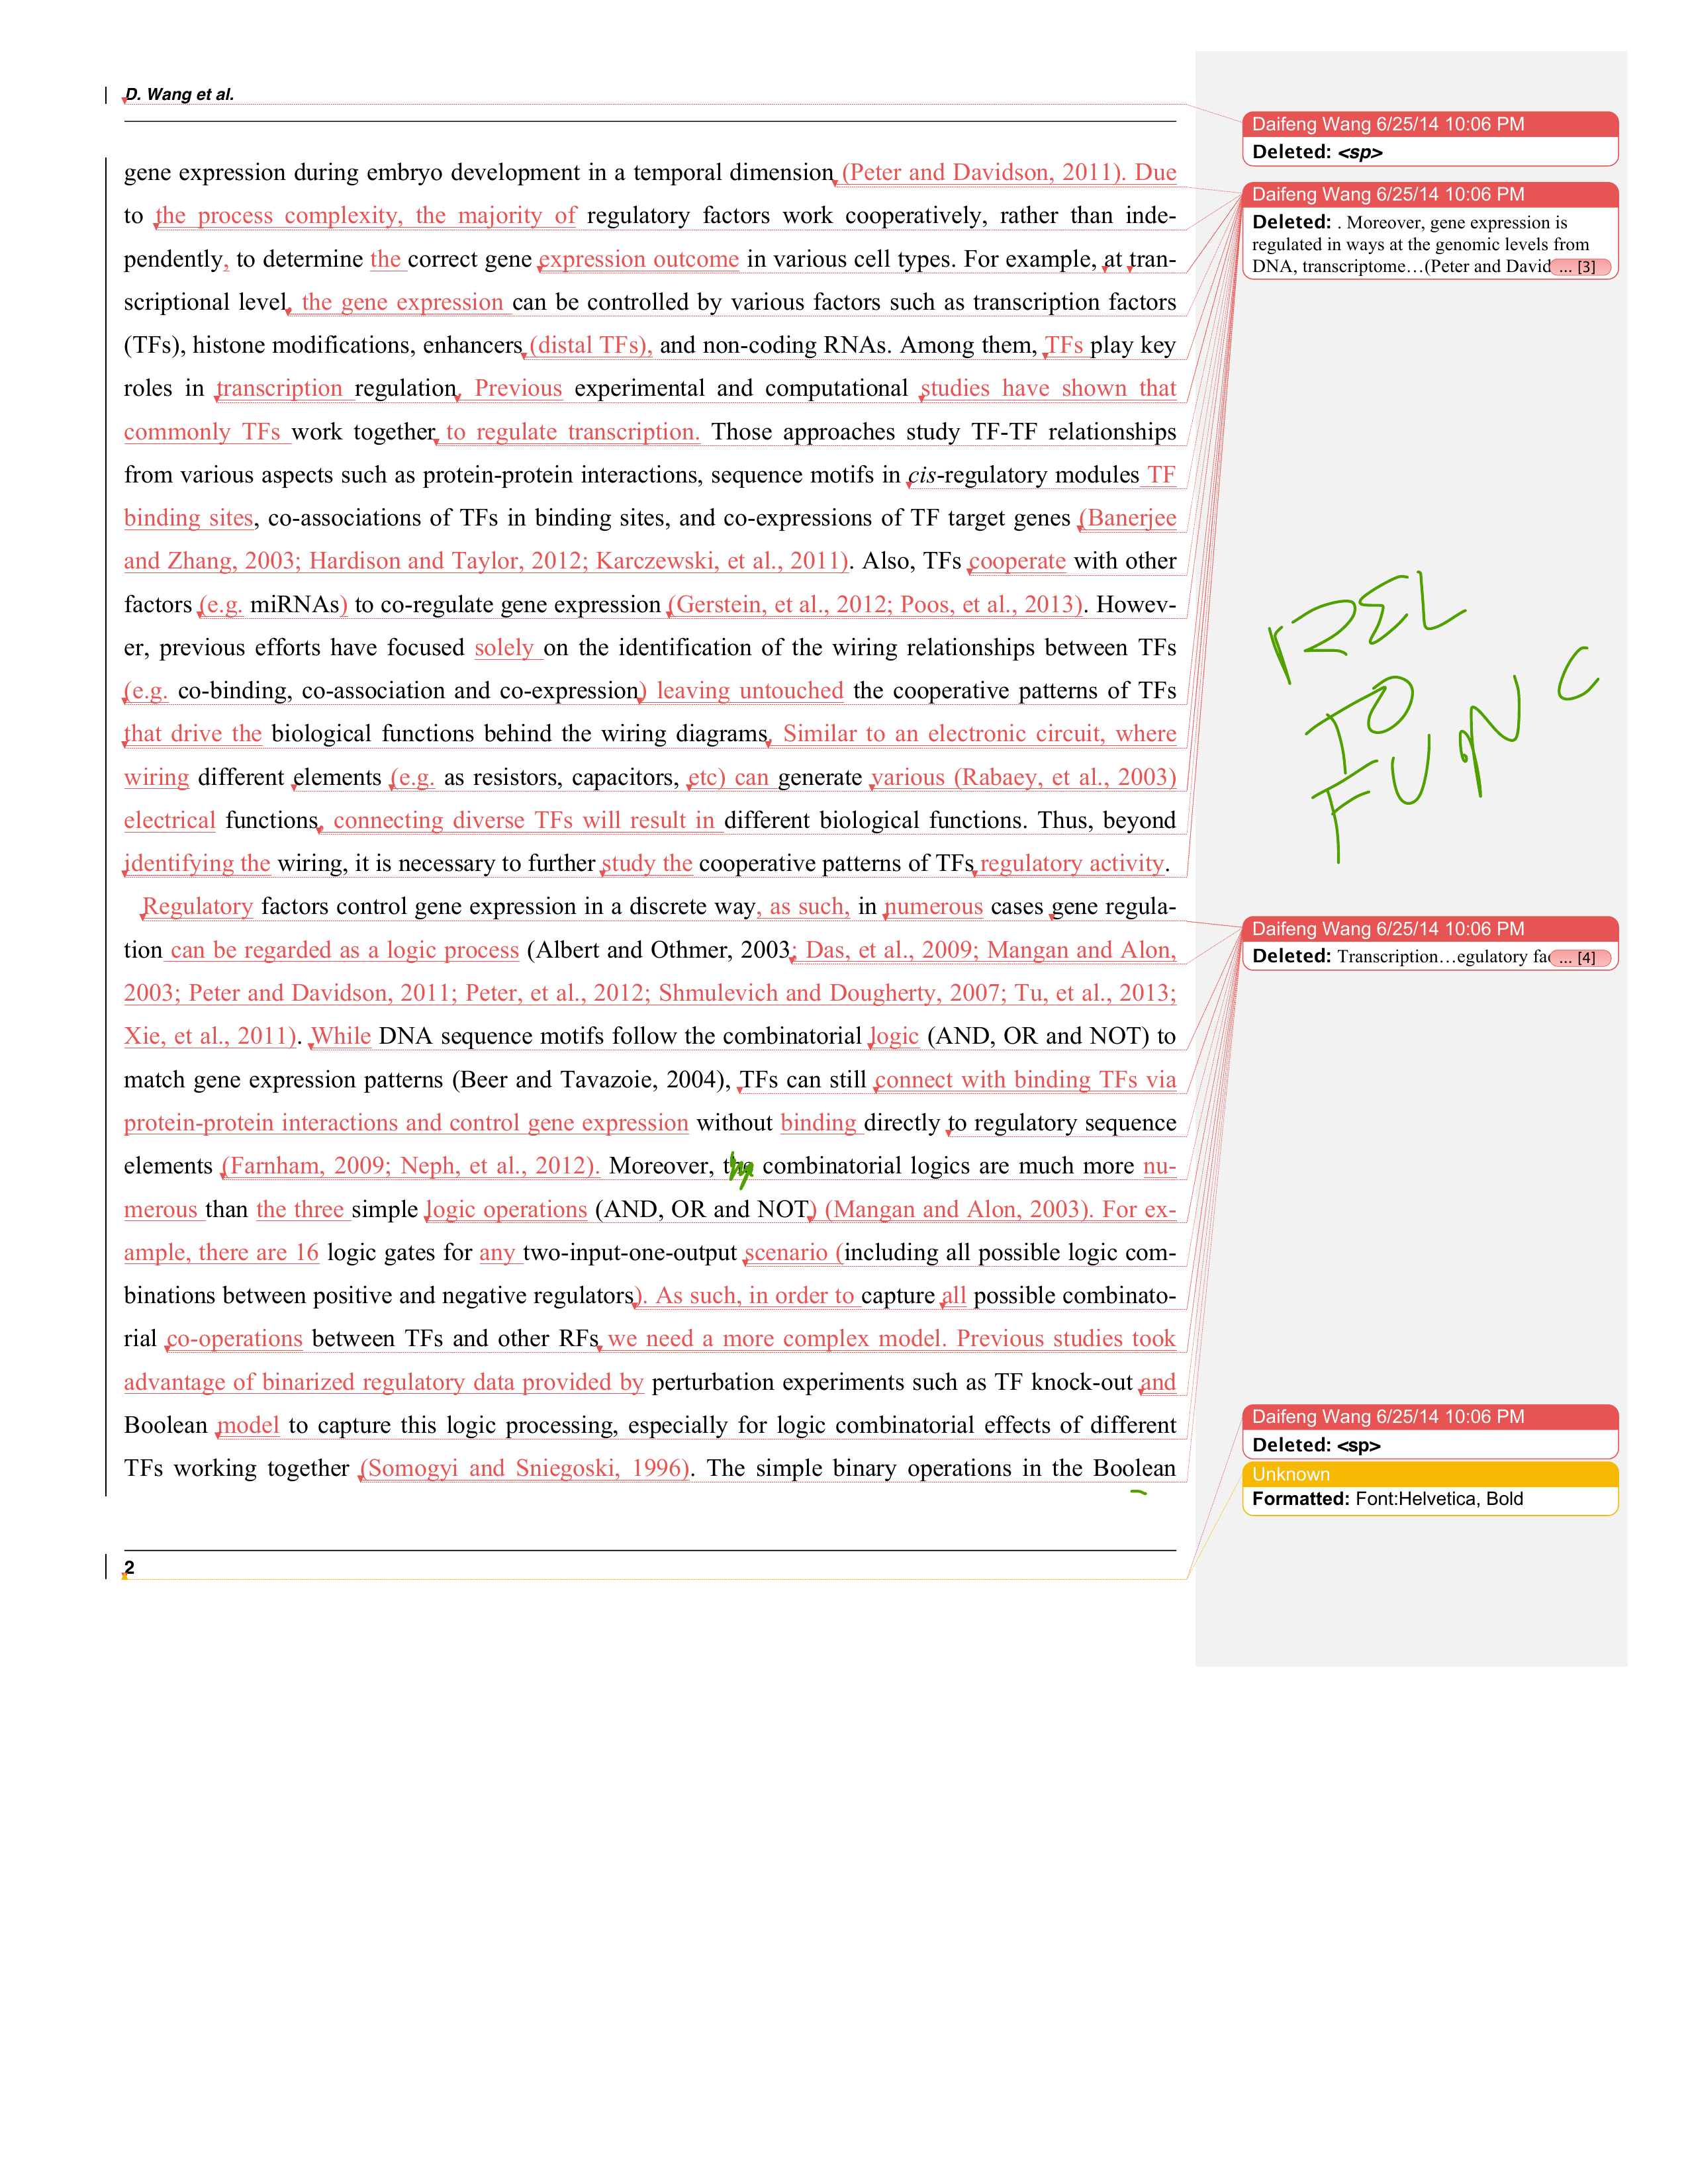 D. Wang et al.
gene expression during embryo development in a temporal dimension (Peter and Davidson, 2011). Due
to the process complexity, the majority of regulatory factors work cooperatively, rather than inde-
pendently, to determine the correct gene expression outcome in various cell types. For example, at tran-
scriptional level, the gene expression can be controlled by various factors such as transcription factors
(TFs), histone modifications, enhancers (distal TFs), and non-coding RNAs. Among them, TFs play key
roles in transcription regulation. Previous experimental and computational studies have shown that
commonly TFs work together to regulate transcription. Those approaches study TF-TF relationships
from various aspects such as protein-protein interactions, sequence motifs in cis-regulatory modules TF
binding sites, co-associations of TFs in binding sites, and co-expressions of TF target genes (Banerjee
and Zhang, 2003; Hardison and Taylor, 2012; Karczewski, et al., 2011). Also, TFs cooperate with other
factors (e.g. miRNAs) to co-regulate gene expression (Gerstein, et al., 2012; Poos, et al., 2013). Howev-
er, previous efforts have focused solely on the identification of the wiring relationships between TFs
(e.g. co-binding, co-association and co-expression) leaving untouched the cooperative patterns of TFs
that drive the biological functions behind the wiring diagrams. Similar to an electronic circuit, where
wiring different elements (e.g. as resistors, capacitors, etc) can generate various (Rabaey, et al., 2003)
electrical functions, connecting diverse TFs will result in different biological functions. Thus, beyond
identifying the wiring, it is necessary to further study the cooperative patterns of TFs regulatory activity.
Regulatory factors control gene expression in a discrete way, as such, in numerous cases gene regula-
tion can be regarded as a logic process (Albert and Othmer, 2003; Das, et al., 2009; Mangan and Alon,
2003; Peter and Davidson, 2011; Peter, et al., 2012; Shmulevich and Dougherty, 2007; Tu, et al., 2013;
Xie, et al., 2011). While DNA sequence motifs follow the combinatorial logic (AND, OR and NOT) to
match gene expression patterns (Beer and Tavazoie, 2004), TFs can still connect with binding TFs via
protein-protein interactions and control gene expression without binding directly to regulatory sequence
elements (Farnham, 2009; Neph, et al., 2012). Moreover, the combinatorial logics are much more nu-
merous than the three simple logic operations (AND, OR and NOT) (Mangan and Alon, 2003). For ex-
ample, there are 16 logic gates for any two-input-one-output scenario (including all possible logic com-
binations between positive and negative regulators). As such, in order to capture all possible combinato-
rial co-operations between TFs and other RFs we need a more complex model. Previous studies took
advantage of binarized regulatory data provided by perturbation experiments such as TF knock-out and
Boolean model to capture this logic processing, especially for logic combinatorial effects of different
TFs working together (Somogyi and Sniegoski, 1996). The simple binary operations in the Boolean
2
Daifeng Wang 6/25/14 10:06 PM
Deleted: <sp>
Daifeng Wang 6/25/14 10:06 PM
Deleted: . Moreover, gene expression is
regulated in ways at the genomic levels from
DNA, transcriptome…(Peter and David ... [3]
REL
TO
FUNC
Daifeng Wang 6/25/14 10:06 PM
Deleted: Transcription…egulatory fac ... [4]
Daifeng Wang 6/25/14 10:06 PM
Deleted: <sp>
Unknown
Formatted: Font:Helvetica, Bold